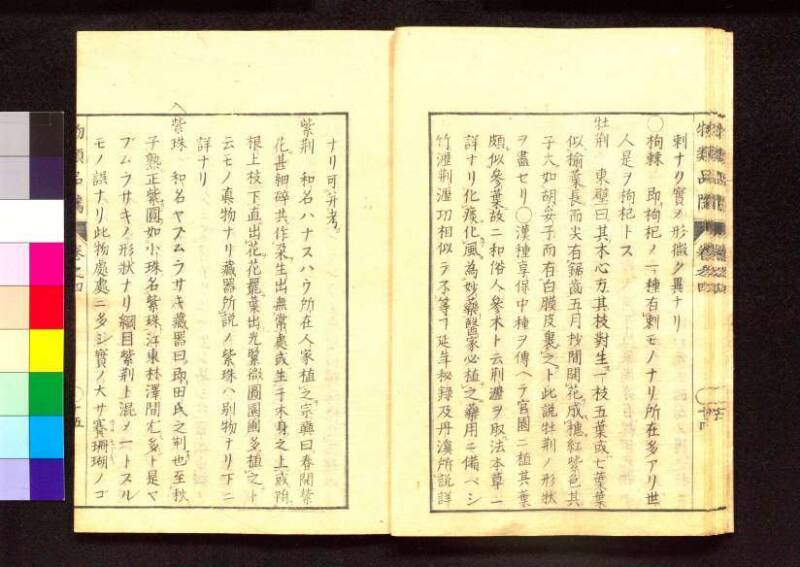 刺ナリ實ノ形微ク異ナリ
〇枸棘 即枸杞ノ一種有刺モノナリ所在多アリ世
人是ヲ枸杞トス
牡荊 東壁曰其木心方其枝對生一枝五葉或七葉葉
似榆葉長而尖有鋸齒五月抄開花成穗紅紫色其
子大如胡荽子而有白膜皮裹之ト此說牡荊ノ形狀
ヲ盡セリ〇漢種享保中種ヲ傳ヘテ官園ニ植其葉
頗似參葉故ニ和俗人參木ト云荊瀝ヲ取法本草ニ
詳ナリ化痰化風為妙藥醫家必植之藥用ニ備ベシ
竹瀝荊瀝功相似テ不等了延年秘錄及丹溪所說詳
ナリ可并考
紫荊 和名ハナスハウ所在人家植之宗奭曰春開紫
花甚細碎共作朶生出無常處或生于木身之上或附
根上枝下直出花花罷葉出光緊微圓園圃多植之ト
云モノ真物ナリ藏器所說ノ紫珠ハ別物ナリ下ニ
詳ナリ
紫珠 和名ヤブムラサキ藏器曰即田氏之荊也至秋
子熟正紫圓如小珠名紫珠江東林澤間尤多ト是ヤ
ブムラサキノ形狀ナリ綱目紫荊ト混メ一トスル
モノ誤ナリ此物處處ニ多シ實ノ大サ賽珊瑚ノゴ
物類品隲 卷之四 十五